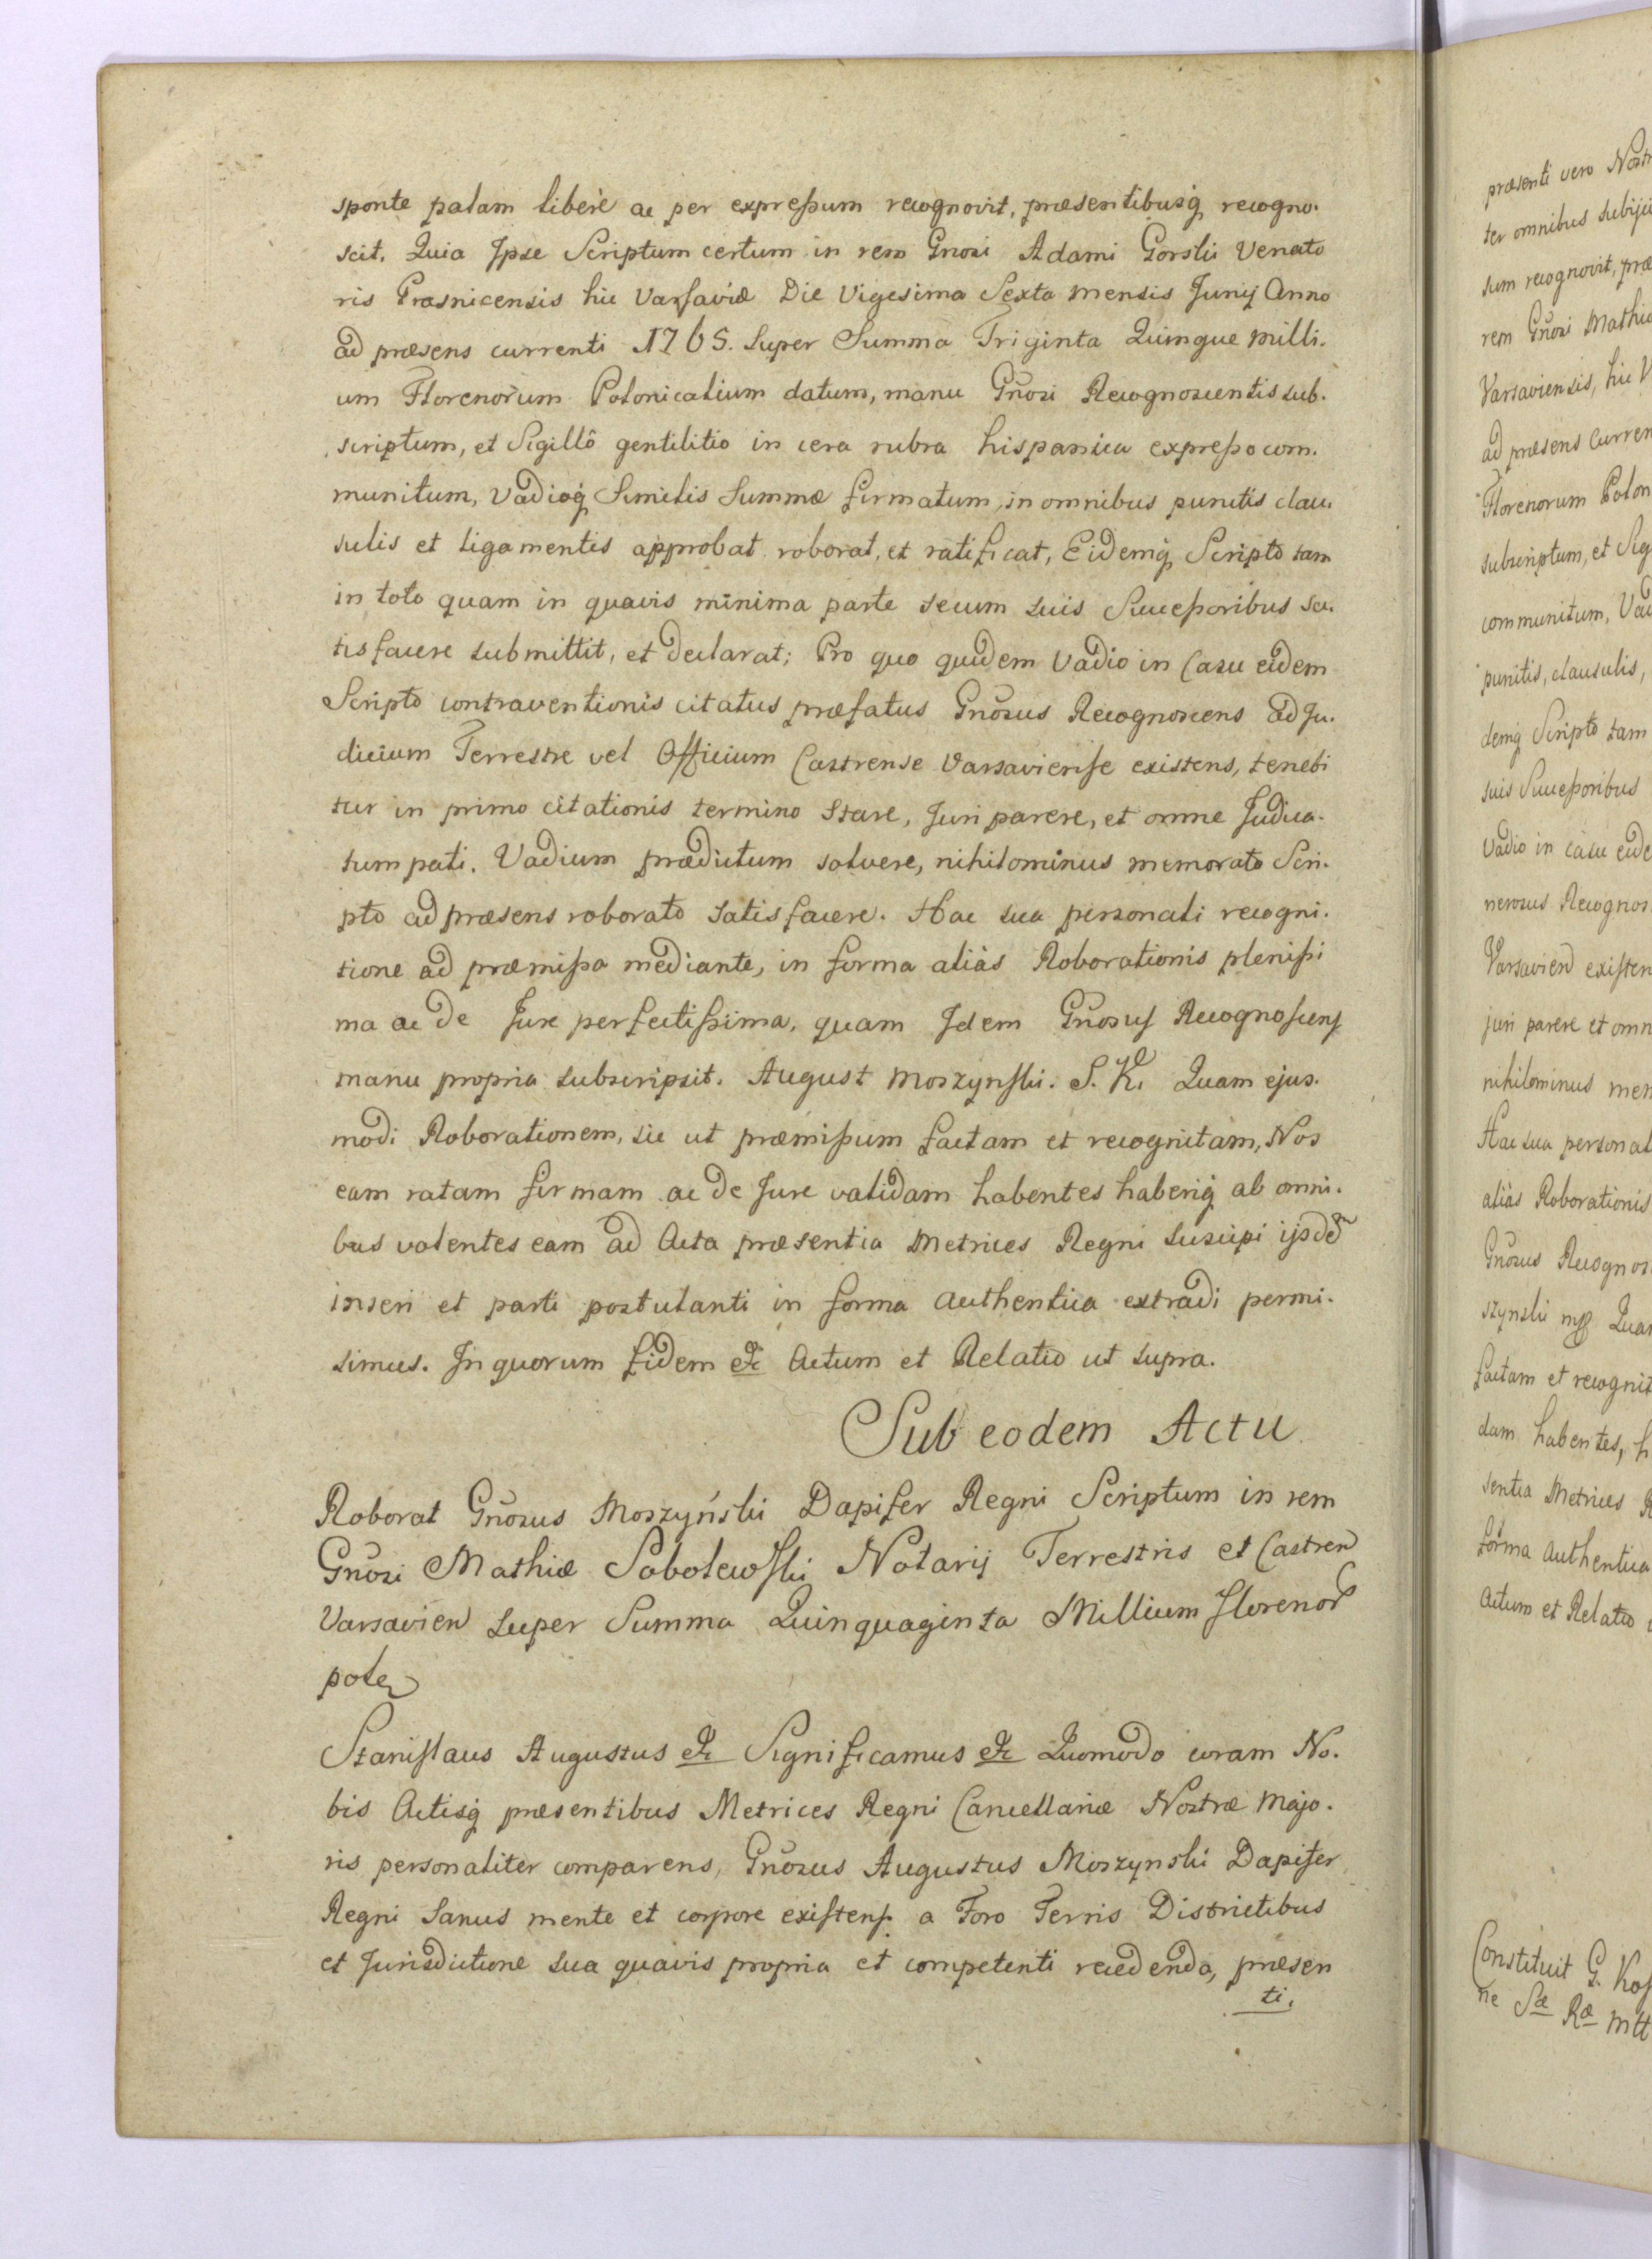 sponte palam liberè ac per expreſsum recognovit, præsentibusq́ recogno.
scit. Quia Jpse Scriptum certum in rem Gnosi Adami Gorski Venato
ris Prasnicensis hic Varſaviæ Die Vigesima Sexta mensis Junij Anno
ad præsens currenti 1765. super Summa Triginta Quinque milli.
um Florenorum Polonicalium datum, manu Gñosi Recognoscentis sub.
scriptum, et Sigillô gentilitio in cera rubra hispanica expreſso com.
munitum, Vadioq́ Similis Summæ firmatum, in omnibus punctis clau.
sulis et ligamentis approbat roborat, et ratificat, Eidemq́ Scripto tam
in toto quam in quavis minima parte secum suis Succeſsoribus sa.
tisfacere submittit, et declarat; Pro quo quidem Vadio in Casu eidem
Scripto contraventionis citatus præfatus Gñosus Recognoscens ad Ju.
dicium Terrestre vel Officium Castrense Varsavienſe existens, tenebi
tur in primo citationis termino Stare, Juri parere, et omne Judica.
tum pati. Vadium prædictum solvere, nihilominus memorato Scri.
pto ad præsens roborato satisfacere. Hac sua personali recogni.
tione ad præmiſsa mediante, in forma aliàs Roborationis pleniſsi
ma ac de Jure perfectiſsima, quam Jdem Gñosuſ Recognoſcenſ
manu propria subscripsit. August Moszynſki. S. K. Quam ejus.
modi Roborationem, sic ut præmiſsum factam et recognitam, Nos
eam ratam firmam ac de Jure validam habentes haberiq́ ab omni.
bus volentes eam ad Acta præsentia Metrices Regni suscipi ijsdẽ
inseri et parti postulanti in forma Authentica extradi permi.
simus. In quorum fidem &c Actum et Relatio ut supra.
Sub eodem Actu
Roborat Gñosus Moszyński Dapifer Regni Scriptum in rem
Gñosi Mathiæ Sobolewſki Notarij Terrestris et Castren
Varsavien super Summa Quinquaginta Millium Florenor
pol
Staniſlaus Augustus &c Significamus &c Quomodo coram No.
bis Actisq́ præsentibus Metrices Regni Cancellariæ Nostræ Majo.
ris personaliter comparens, Gñosus Augustus Moszynski Dapifer
Regni Sanus mente et corpore exiſtenſ. a Foro Terris Districtibus
et Jurisdictione sua quavis propria et competenti recedendo, præsen
ti.
præsenti vero Nost
ter omnibus subijci
sum recognovit, præ
rem Gñosi Mathiæ
Varsaviensis, hic V
ad præsens Curren
Florenorum Polon
subscriptum, et Sig
communitum, Vad
punctis, clausulis,
demq́ Scripto tam
suis Succeſsoribus
Vadio in casu eide
nerosus Recognos
Varsavien exiſten
juri parere et omn
nihilominus mem
Hac sua personal
aliàs Roborationis
Gñosus Recognos
szynski mp Quam
factam et recognit
dam habentes, h
sentia Metrices R
forma Authentica
Actum et Relatio
Constituit G. Koſ
ne Sæ Ræ Mtt